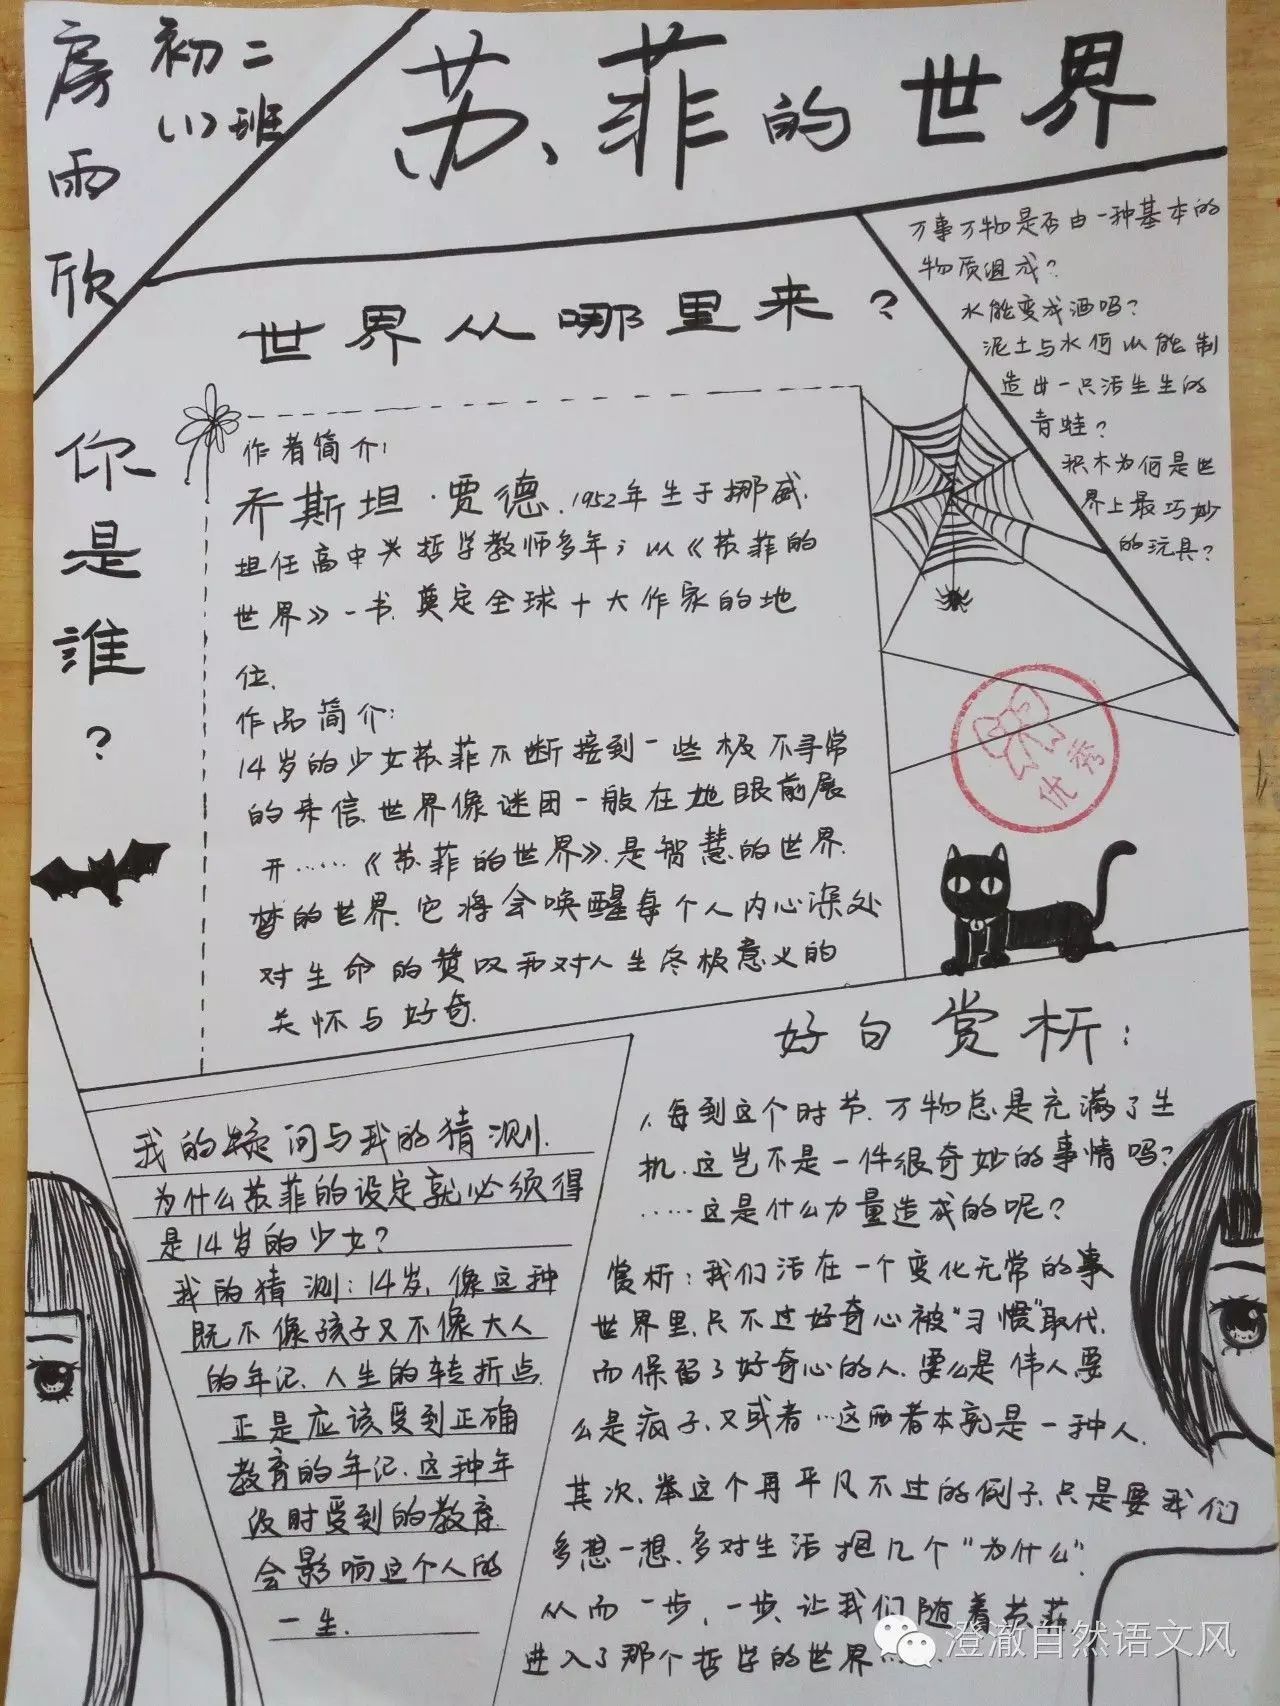 房雨欣
初二
(1)班
苏菲的世界
世界从哪里来?
你是誰?
万事万物是否由一种基本的
物质组成?
水能变成酒吗?
泥土与水何以能制
造出一只活生生的
青蛙?
积木为何是世
界上最巧妙
的玩具?
作者简介:
乔斯坦·贾德,1952年生于挪威.
担任高中哲学教师多年;以《苏菲的
世界》一书,奠定全球十大作家的地
位.
作品简介:
14岁的少女苏菲不断接到一些极不寻常
的来信,世界像谜团一般在她眼前展
开……《苏菲的世界》,是智慧的世界,
梦的世界,它将会唤醒每个人内心深处
对生命的赞叹和对人生终极意义的
关怀与好奇.
优秀
我的疑问与我的猜测.
为什么苏菲的设定就必须得
是14岁的少女?
我的猜测:14岁,像这种
既不像孩子又不像大人
的年记,人生的转折点,
正是应该受到正确
教育的年记,这种年
段时受到的教育
会影响这个人的
一生.
好句赏析:
1.每到这个时节,万物总是充满了生
机,这岂不是一件很奇妙的事情吗?
……这是什么力量造成的呢?
赏析:我们活在一个变化无常的事
世界里,只不过好奇心被"习惯"取代,
而保留了好奇心的人,要么是伟人要
么是疯子,又或者…这两者本就是一种人.
其次,举这个再平凡不过的例子,只是要我们
多想一想,多对生活抱几个"为什么"
从而一步,一步,让我们随着苏菲,
进入了那个哲学的世界……
澄澈自然语文风